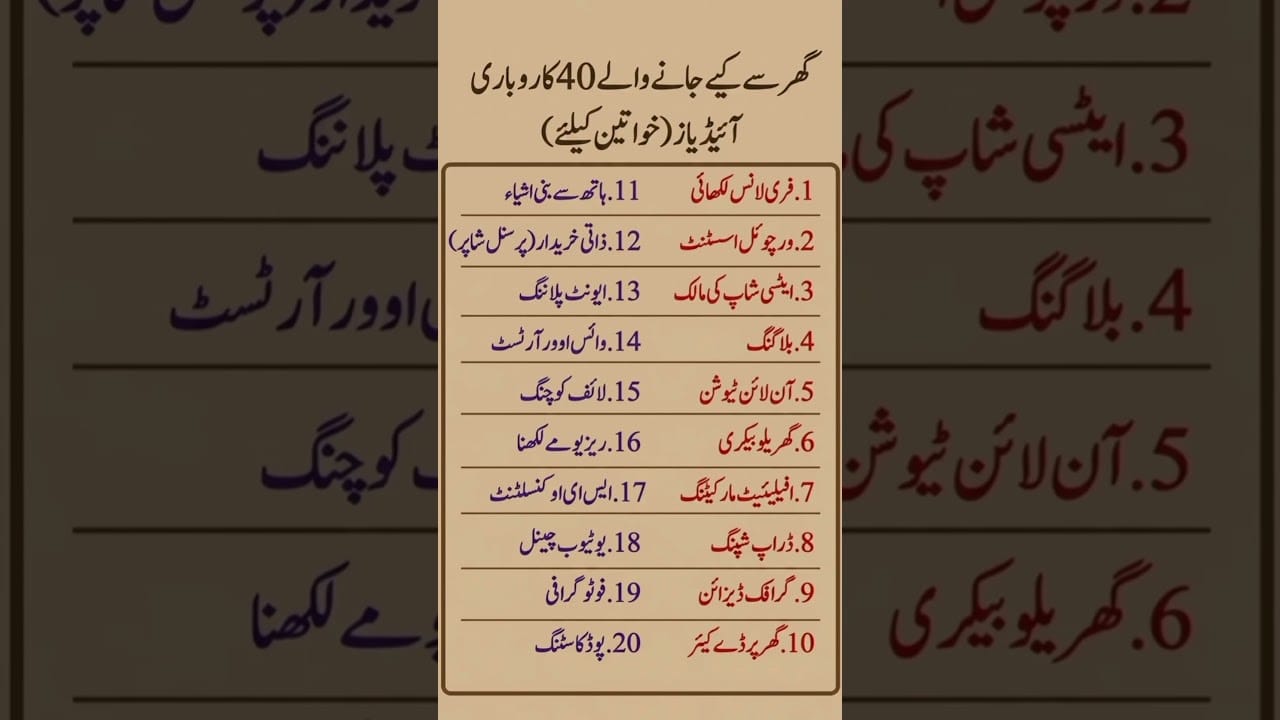 گھر سے کیے جانے والے 40 کاروباری
آئیڈیاز (خواتین کیلئے)
1. فری لانس لکھائی
2. ورچوئل اسسٹنٹ
3. ایٹسی شاپ کی مالک
4. بلاگنگ
5. آن لائن ٹیوشن
6. گھریلو بیکری
7. افیلیئیٹ مارکیٹنگ
8. ڈراپ شپنگ
9. گرافک ڈیزائن
10. گھر پر ڈے کیئر
11. ہاتھ سے بنی اشیاء
12. ذاتی خریدار (پرسنل شاپر)
13. ایونٹ پلاننگ
14. وائس اوور آرٹسٹ
15. لائف کوچنگ
16. ریزیومے لکھنا
17. ایس ای او کنسلٹنٹ
18. یوٹیوب چینل
19. فوٹو گرافی
20. پوڈکاسٹنگ